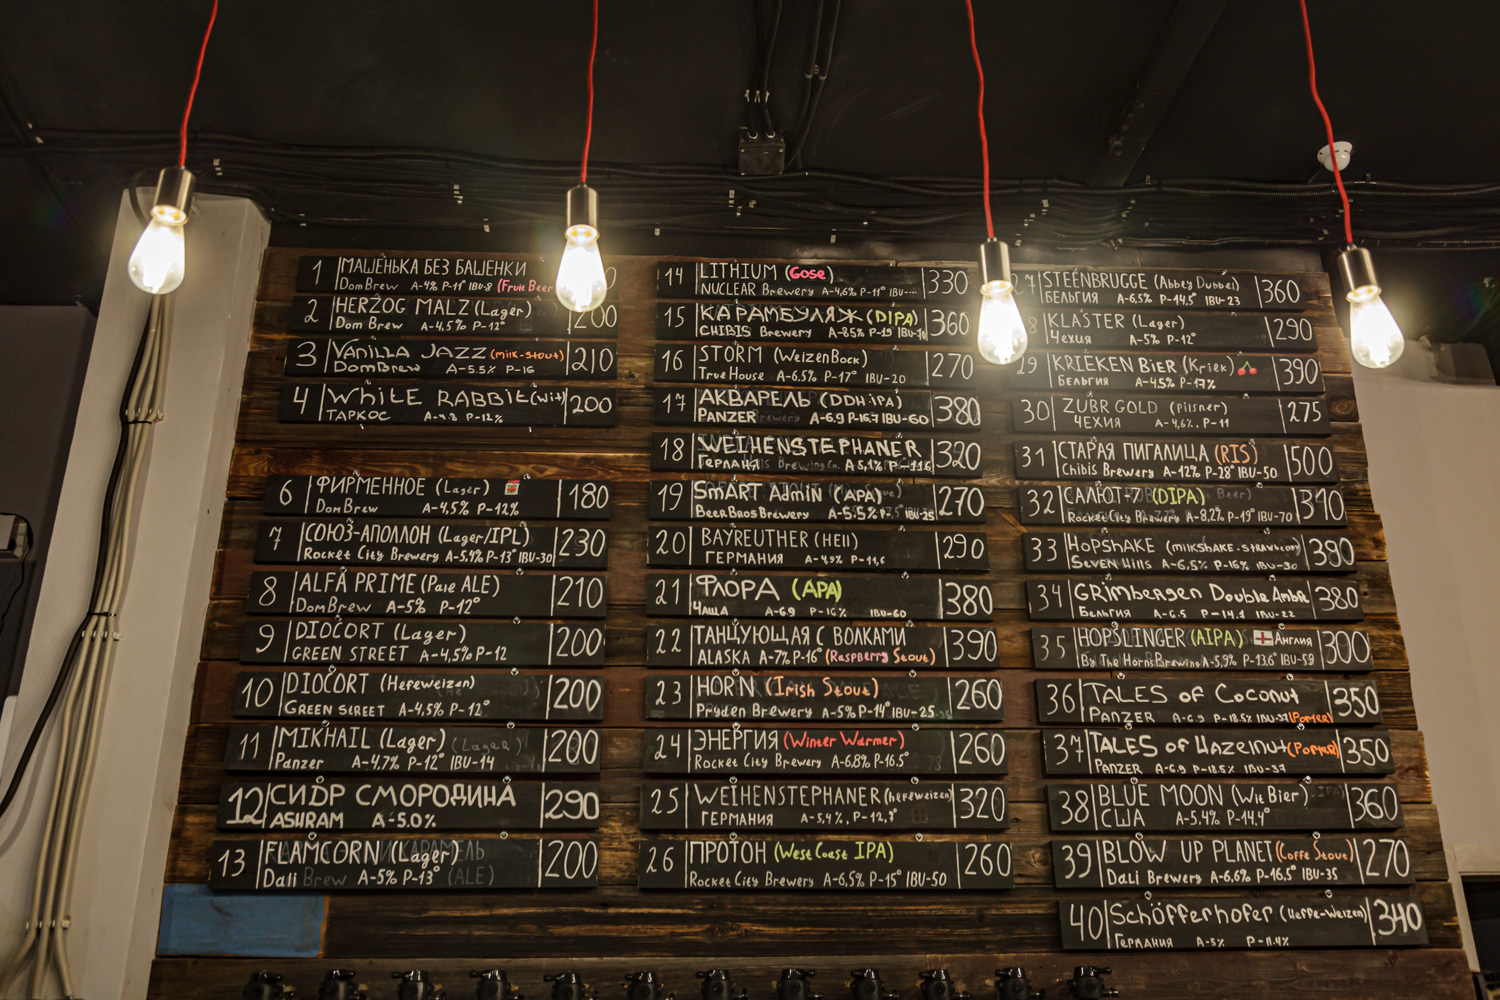 1 МАШЕНЬКА БЕЗ БАШЕНКИ
DomBrew A-4% P-11° IBU-8 (Fruit Beer
2 HERZOG MALZ (Lager) 200
Dom Brew A-4,5% P-12°
3 Vanilla JAZZ (milk-stout) 210
DomBrew A-5.5% P-16
4 WhiLE RABBit (Wit) 200
ТАРКОС A-4.8 P-12%
6 ФИРМЕННОЕ (Lager) 180
DomBrew A-4,5% P-12%
7 СОЮЗ-АПОЛЛОН (Lager/IPL) 230
Rocket City Brewery A-5,4% P-13° IBU-30
8 ALFA PRIME (Pale ALE) 210
DomBrew A-5% P-12°
9 DIOCORT (Lager) 200
GREEN STREET A-4,5% P-12
10 DIOCORT (Hefeweizen) 200
GREEN STREET A-4,5% P-12°
11 MIKHAIL (Lager) 200
Panzer A-4,7% P-12° IBU-14
12 СИДР СМОРОДИНА 290
ASHRAM A-5.0%
13 FLAMCORN (Lager) 200
Dali Brew A-5% P-13° (ALE)
14 LITHIUM (Gose) 330
NUCLEAR Brewery A-4,6% P-11° IBU---
15 КАРАМБУЛЯЖ (DIPA) 360
CHIBIS Brewery A-85% P-19
16 STORM (WeizenBock) 270
True House A-6,5% P-17° IBU-20
17 АКВАРЕЛЬ (DDH.iPA) 380
PANZER A-6.9 P-16.7 IBU-60
18 WEIHENSTEPHANER 320
Германия A-5,1% P-11.6
19 SmART AdmiN (APA) 270
BeerBrosBrewery A-5.5% IBU-25
20 BAYREUTHER (Hell) 290
ГЕРМАНИЯ A-4,9% P-11,6
21 ФЛОРА (APA) 380
ЧАЩА A-6.9 P-16% IBU-60
22 ТАНЦУЮЩАЯ С ВОЛКАМИ 390
ALASKA A-7% P-16° (Raspberry Stout)
23 HORN (Irish Stout) 260
Pryden Brewery A-5% P-14° IBU-25
24 ЭНЕРГИЯ (Winter Warmer) 260
Rocket City Brewery A-6,8% P-16.5°
25 WEIHENSTEPHANER (hefeweizen) 320
ГЕРМАНИЯ A-5,4%, P-12,7°
26 ПРОТОН (West Coast IPA) 260
Rocket City Brewery A-6,5% P-15° IBU-50
27 STEENBRUGGE (Abbey Dubbel) 360
БЕЛЬГИЯ A-6,5% P-14,5° IBU-23
8 KLASTER (Lager) 290
Чехия A-5% P-12°
29 KRIEKEN BiER (Kriek) 390
Бельгия A-4,5% P-17%
30 ZUBR GOLD (Pilsner) 275
ЧЕХИЯ A-4,6%, P-11
31 СТАРАЯ ПИГАЛИЦА (RIS) 500
Chibis Brewery A-12% P-28° IBU-50
32 САЛЮТ-7 (DIPA) 310
Rocket City Brewery A-8,2% P-19° IBU-70
33 HOPSHAKE (milKSHAKE-strawberry) 380
SEVEN Hills A-6,5% P-16% IBU-30
34 GRimbergen Double Ambre 380
Бельгия A-6.5 P-14.1 IBU-22
35 HOPSLINGER (AIPA) Англия 300
By The Horns Brewing A-5,9% P-13,6° IBU-59
36 TALES of Coconut 350
PANZER A-6.9 P-18.5% IBU-37 (Porter)
37 TALES of Hazelnut (Porter) 350
PANZER A-6.9 P-18.5% IBU-37
38 BLUE MOON (Wit Bier) 360
США A-5.4% P-14,4°
39 BLOW UP PLANET (Coffe Stout) 270
Dali Brewery A-6,6% P-16,5° IBU-35
40 Schöfferhofer (Heffe-Weizen) 340
Германия A-5% P-11.4%